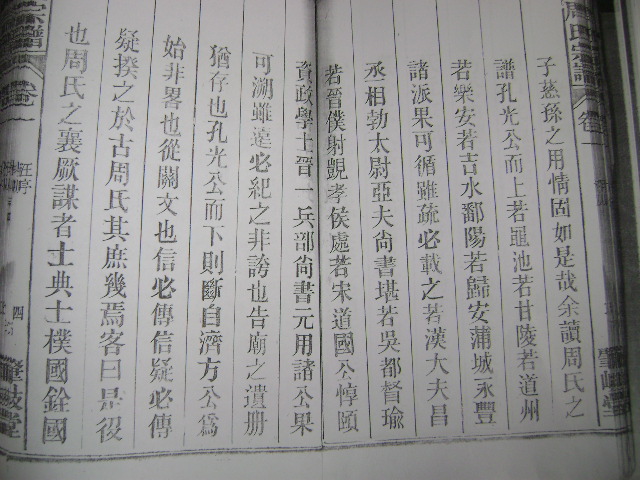 周氏宗譜 卷一
子慈孫之用情固如是哉余讀周氏之
譜孔光公而上若黽池若甘陵若道州
若樂安若吉水鄱陽若歸安蒲城永豐
諸派果可循雖疏必載之若漢大夫昌
丞相勃太尉亞夫尙書堪若吳都督瑜
若晉僕射覬孝侯處若宋道國公惇頤
資政學士晉一兵部尙書元用諸公果
可溯雖遠必紀之非誇也告廟之遺册
猶存也孔光公而下則斷自濟方公爲
始非畧也從闕文也信必傳信疑必傳
疑揆之於古周氏其庶幾焉客曰是役
也周氏之襄厥謀者士典士樸國銓國
宗譜 卷一
四